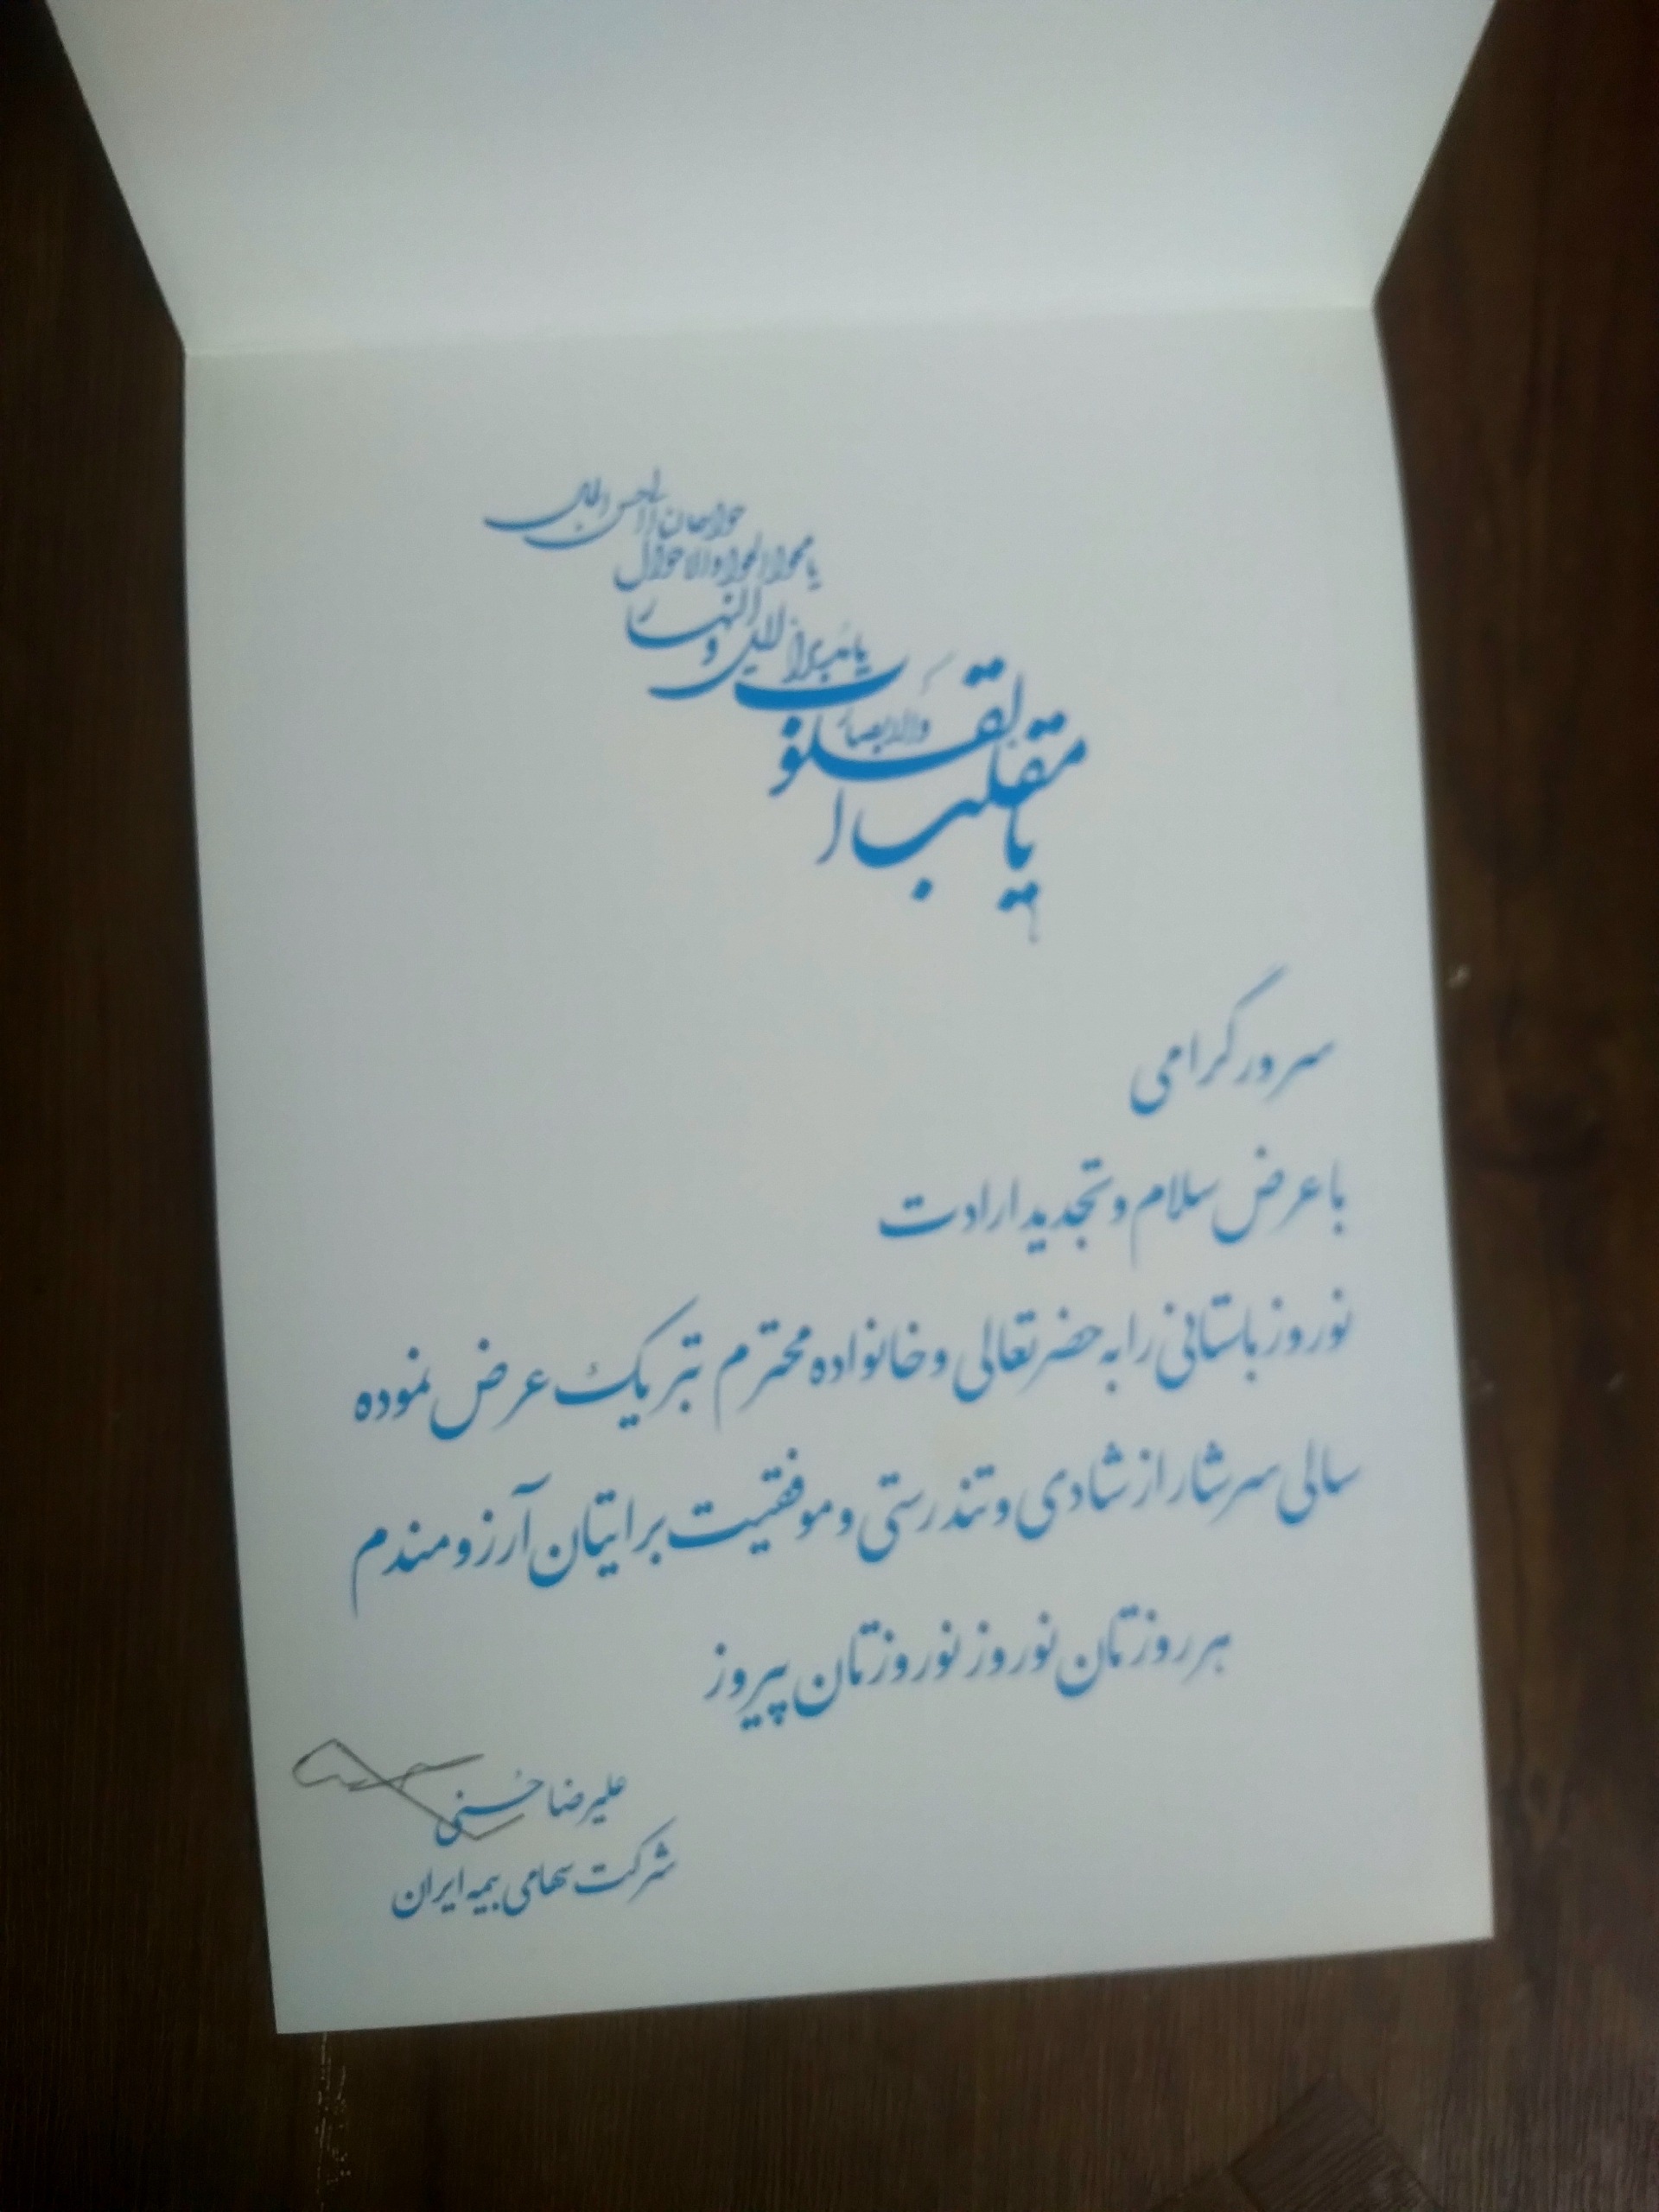 یا مقلب القلوب
والابصار
یا مدبر اللیل و النهار
یا محول الحول والاحوال
حول حالنا الی احسن الحال
سرور گرامی
با عرض سلام و تجدید ارادت
نوروز باستانی را به حضرتعالی و خانواده محترم تبریک عرض نموده
سالی سرشار از شادی و تندرستی و موفقیت برایتان آرزومندم
هر روزتان نوروز نوروزتان پیروز
علیرضا حسنی
شرکت سهامی بیمه ایران